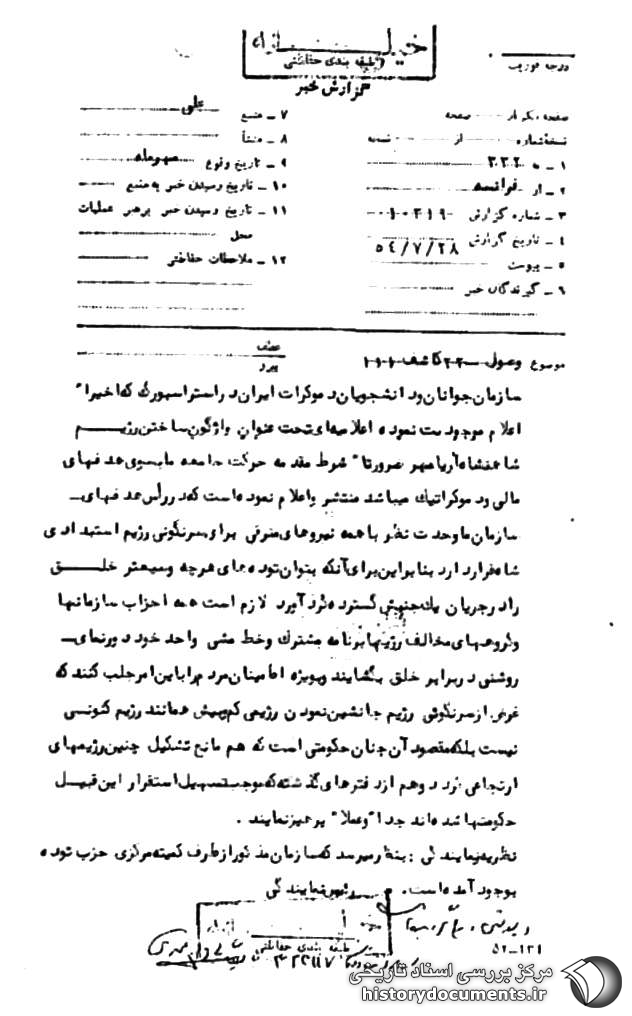 خیلی محرمانه
طبقه بندی حفاظتی
گزارش خبر
درجه فوریت
صفحه یکم از صفحه
نسخه شماره از نسخه
۱ ـ به ۳۳۲
۲ ـ از فرانسه
۳ ـ شماره گزارش ۰۱۰۳۱۹
٤ ـ تاریخ گزارش ۵٤/۷/۲۸
۵ ـ پیوست
٦ ـ گیرندگان خبر
۷ ـ منبع علی
۸ ـ منشأ
۹ ـ تاریخ وقوع مهرماه
۱۰ ـ تاریخ رسیدن خبر به منبع
۱۱ ـ تاریخ رسیدن خبر برهبر عملیات
محل
۱۲ ـ ملاحظات حفاظتی
موضوع وصول ۲۳۰ کاشف ۱۰۱
عطف
پیرو
سازمان جوانان و دانشجویان دموکرات ایران در استراسبورگ که اخیراً
اعلام موجودیت نموده اعلامیه‌ای تحت عنوان واژگون ساختن رژیم
شاهنشاه آریامهر ضرورتاً شرط مقدمه حرکت جامعه ما بسوی هدفهای
مالی و دموکراتیک میباشد منتشر و اعلام نموده است که در رأس هدفهای
سازمان ما وحدت نظر با همه نیروهای مترقی برای سرنگونی رژیم استبدادی
شاه قرار دارد بنابراین برای آنکه بتوان توده های هرچه وسیعتر خلق
را در جریان یک جنبش گسترده گرد آورد لازم است همه احزاب سازمانها
و گروههای مخالف رژیم با برنامه مشترک و خط مشی واحد خود دورنمای
روشنی در برابر خلق بگشایند و بویژه اطمینان مردم را باین امر جلب کنند که
غرض از سرنگونی رژیم جانشین نمودن رژیمی کم و بیش همانند رژیم کنونی
نیست بلکه مقصود آن چنان حکومتی است که هم مانع تشکیل چنین رژیمهای
ارتجاعی گردد و هم از دفترهای گذشته که موجب تسهیل استقرار این قبیل
حکومتها شده اند جداً و عملاً پرهیز نمایند .
نظریه نمایندگی : بنظر میرسد که سازمان مذکور از طرف کمیته مرکزی حزب توده
بوجود آمده است .
رئیس نمایندگی
طبقه بندی حفاظتی
۵۲-۱۲۱
مرکز بررسی اسناد تاریخی
historydocuments.ir